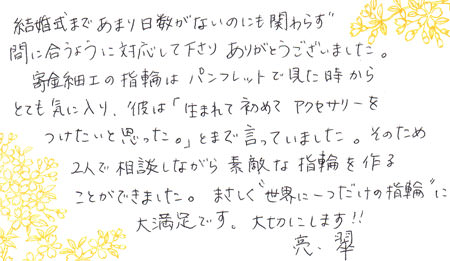 結婚式まであまり日数がないのにも関わらず
間に合うように対応して下さり ありがとうございました。
寄金細工の指輪は パンフレットで見た時から
とても気に入り、彼は「生まれて初めて アクセサリーを
つけたいと思った。」とまで言っていました。そのため
2人で相談しながら 素敵な指輪を作る
ことができました。 まさしく"世界に一つだけの指輪"に
大満足です。大切にします!!
亮、翠